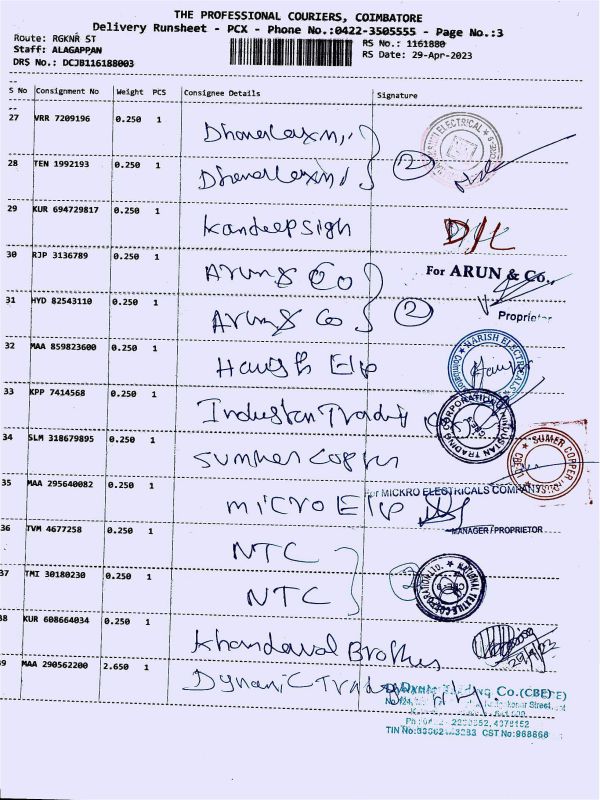 THE PROFESSIONAL COURIERS, COIMBATORE
Delivery Runsheet - PCX - Phone No.:0422-3505555 - Page No.:3
Route: RGKNR ST
RS No.: 1161880
Staff: ALAGAPPAN
RS Date: 29-Apr-2023
DRS No.: DCJB116188003
S No Consignment No Weight PCS Consignee Details Signature
27 VRR 7209196 0.250 1
28 TEN 1992193 0.250 1
2
29 KUR 694729817 0.250 1 Kandeepsigh
30 RJP 3136789 0.250 1 Arun & Co
For ARUN & Co.,
31 HYD 82543110 0.250 1 Arun & Co 2
Proprietor
32 MAA 859823600 0.250 1
HARISH ELECTRICALS
33 KPP 7414568 0.250 1 Industan Trading
34 SLM 318679895 0.250 1 Summer Copper
SUMER COPPER
35 MAA 295640082 0.250 1 micro Ele
For MICKRO ELECTRICALS COMPANY
MANAGER/PROPRIETOR
36 TVM 4677258 0.250 1 NTC
2
37 TMI 30180230 0.250 1 NTC
38 KUR 608664034 0.250 1 Khandewal Brothers
39 MAA 290562200 2.650 1 Dynamic Trading
Co.(CBE)